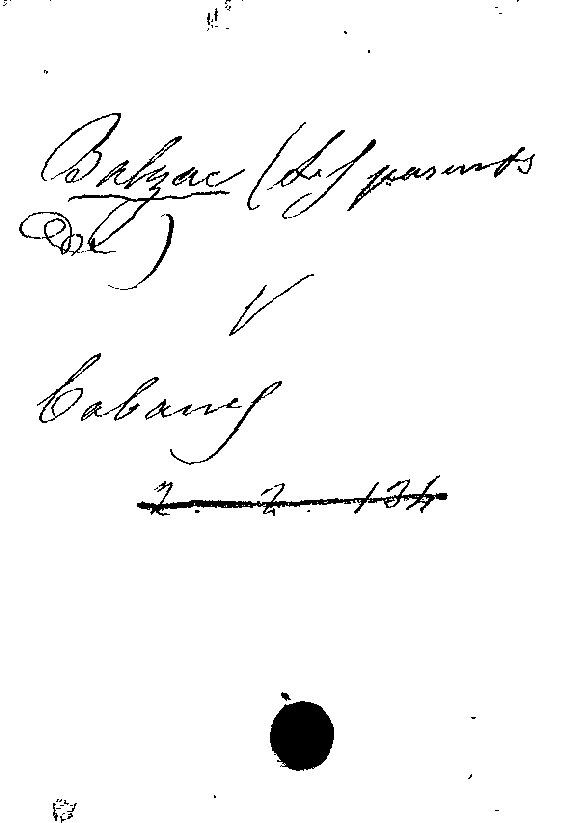 Balzac (Les parents
de)
V
Cabanes
2. 2. 134